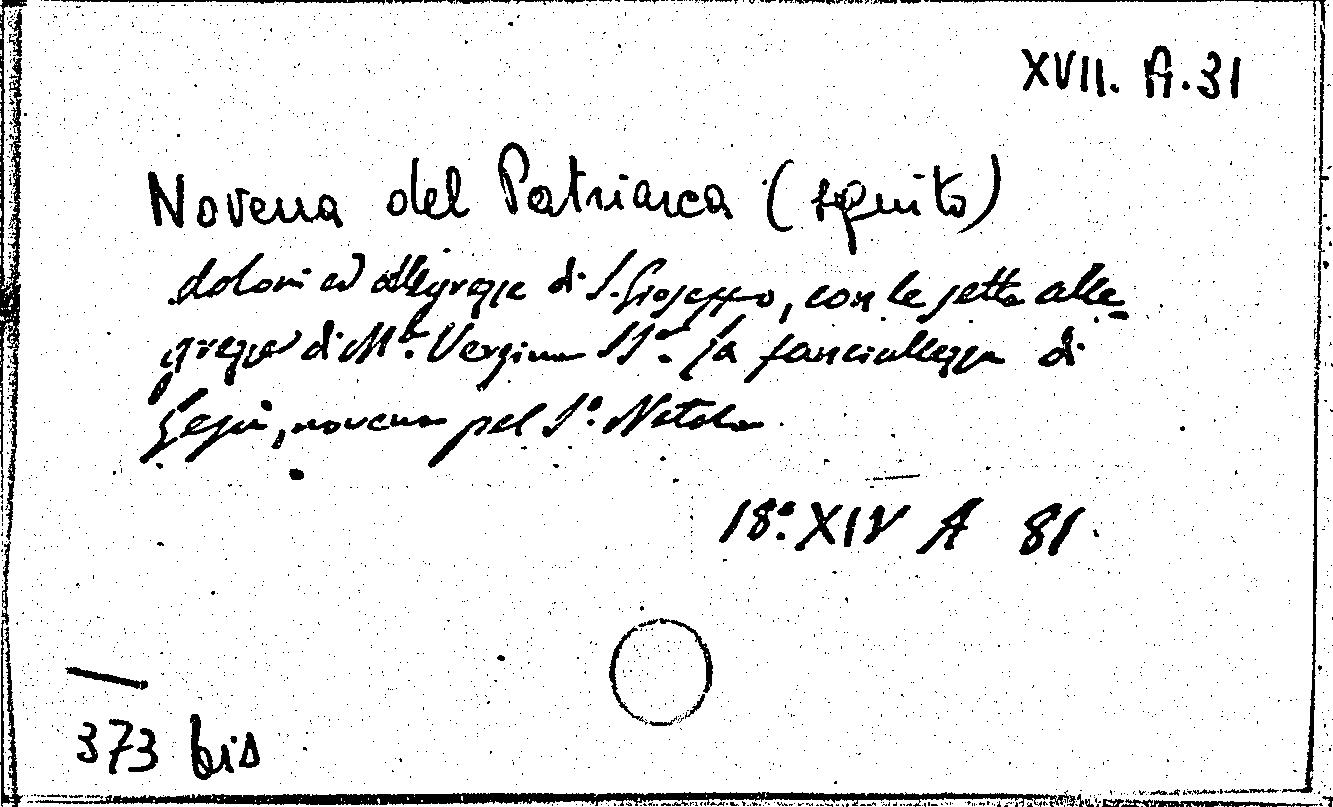 XVII. A. 31
Novena del Patriarca (seguito)
dolori ed allegrezze di S. Giuseppe, con le sette alle-
grezze di Mª. Vergine SSª. la fanciullezza di
Gesù, novena pel Sº. Natale
18º. XIV A 81.
373 bis